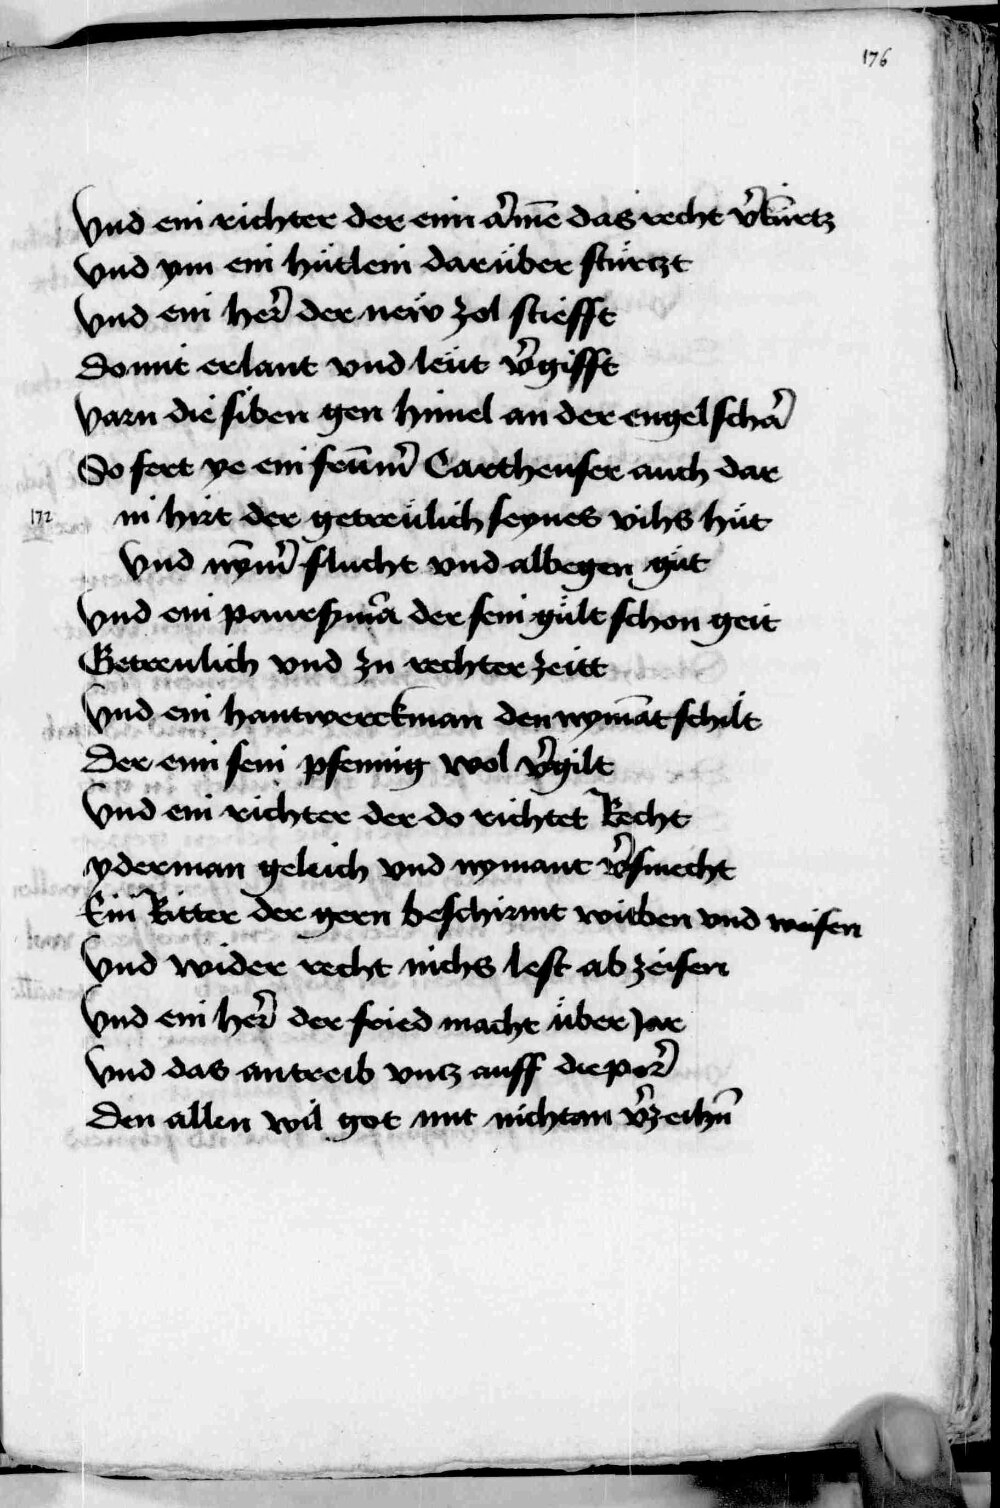 176
Vnd ein richter der eim a᷑mē das recht v᷑kürtz
Vnd ym ein hütlein darüber stürtzt
Vnd ein her᷑ der new zol stiefft
Domit erlant vnd leüt v᷑gifft
Varn die siben gen himel an der engel scha᷑
So fert ye ein frūm᷑ Cartheuser auch dar
172 in hirt der getreülich seynes vihs hüt
Vnd nȳm᷑ flucht vnd albegen güt
Vnd ein pawrsmā der sein gült schon geit
Getreulich vnd zu rechter zeitt
Vnd ein hantwerckman den nymāt schilt
Der eim sein pfennig wol v᷑gilt
Vnd ein richter der do richtet Recht
yderman geleich vnd nymant v᷑smecht
Ein Ritter der gern beschirmt witben vnd weisen
Vnd wider recht nichs lest ab zeisen
Vnd ein her᷑ der fried macht über Jar
Vnd das antreib vntz auff die por᷑
Den allen wil got mit nichtan v᷑zeihn̄